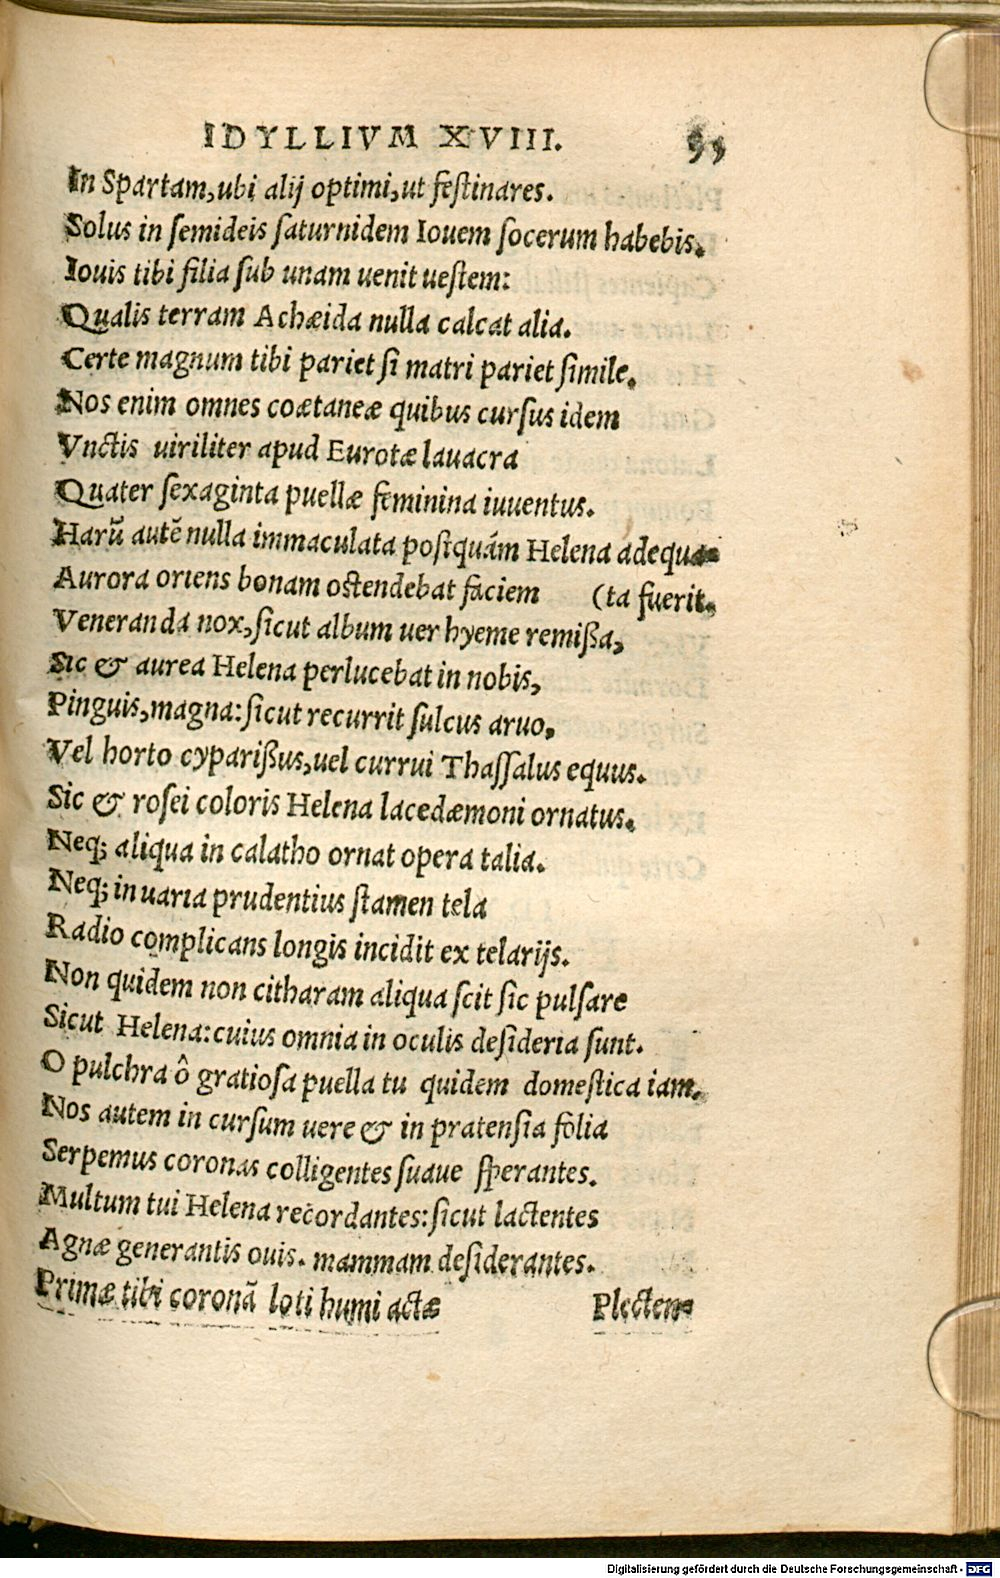 IDYLLIVM XVIII. 95
In Spartam,ubi alij optimi,ut festinares.
Solus in semideis saturnidem Iouem socerum habebis.
Iouis tibi filia sub unam uenit uestem:
Qualis terram Achæida nulla calcat alia.
Certe magnum tibi pariet si matri pariet simile.
Nos enim omnes coætaneæ quibus cursus idem
Vnctis uiriliter apud Eurotæ lauacra
Quater sexaginta puellæ feminina iuuentus.
Harũ autẽ nulla immaculata postquám Helena adequa-
Aurora oriens bonam ostendebat faciem (ta fuerit.
Veneranda nox,sicut album uer hyeme remißa,
Sic & aurea Helena perlucebat in nobis,
Pinguis,magna:sicut recurrit sulcus aruo,
Vel horto cyparißus,uel currui Thassalus equus.
Sic & rosei coloris Helena lacedæmoni ornatus.
Neq; aliqua in calatho ornat opera talia.
Neq; in uaria prudentius stamen tela
Radio complicans longis incidit ex telarijs.
Non quidem non citharam aliqua scit sic pulsare
Sicut Helena:cuius omnia in oculis desideria sunt.
O pulchra ô gratiosa puella tu quidem domestica iam.
Nos autem in cursum uere & in pratensia folia
Serpemus coronas colligentes suaue sperantes.
Multum tui Helena recordantes:sicut lactentes
Agnæ generantis ouis. mammam desiderantes.
Primæ tibi coronã loti humi actæ Plecten-
Digitalisierung gefördert durch die Deutsche Forschungsgemeinschaft - DFG